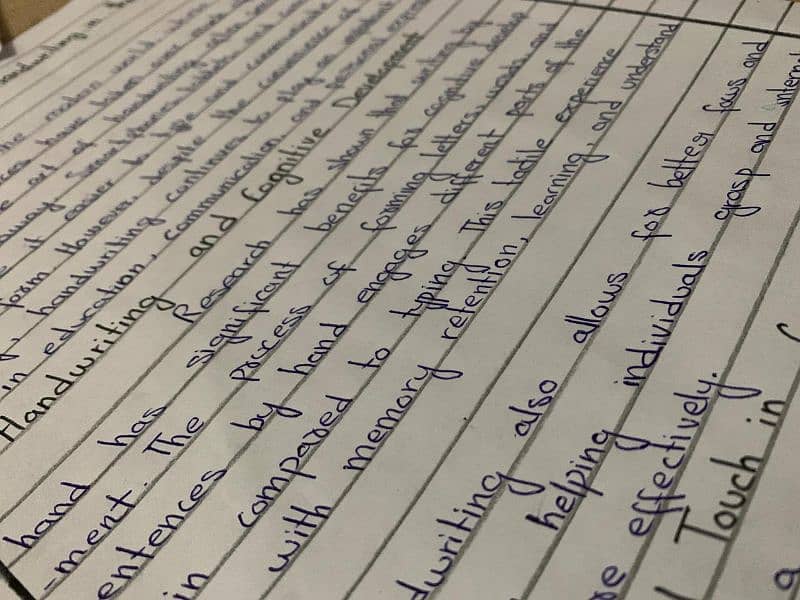 andwriting in
he modern world where
ces have taken over much of
e art of handwriting often
away. Smartphones, tablets, and
e it easier to type and communicate
form. However, despite the convenience of
g, handwriting continues to play an important
in education, communication, and personal
Handwriting and Cognitive Development
Research has shown that writing by
hand has significant benefits for cognitive develop
-ment. The process of forming letters, words, and
entences by hand engages different parts of the
in compared to typing. This tactile experience
with memory retention, learning, and understand
dwriting also allows for better focus and
helping individuals grasp and internal
re effectively.
l Touch in
a